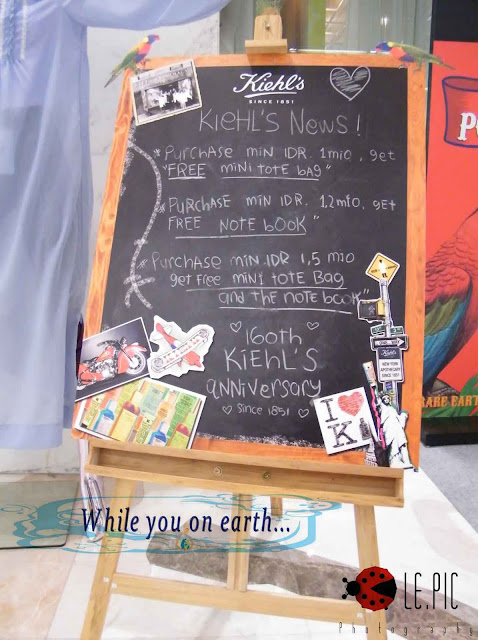 Kiehl's
SINCE 1851
KIEHL'S NEWS!
* PURCHASE MIN IDR. 1 mio, get
"FREE MINI TOTE BAG"
* PURCHASE MIN IDR. 1,2 mio, GET
FREE NOTE BOOK"
* PURCHASE MIN IDR 1,5 mio
get Free MINI TOTE Bag
and THE NOTE BOOK"
160th
KIEHL'S
anniversary
Since 1851
Kiehl's
NEW YORK
APOTHECARY
SINCE 1851
I
K
P
RARE EART
While you on earth...
LC.PIC
Photography